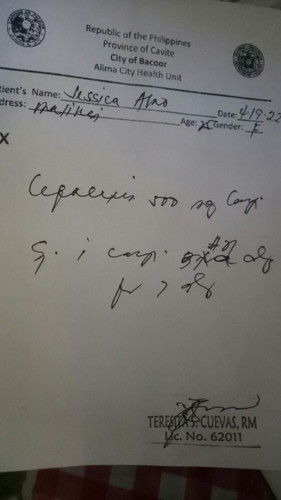 Republic of the Philippines
Province of Cavite
City of Bacoor
Alima City Health Unit
tient's Name: Jessica
dress: Date: 4-19-22
Age: Gender: F
X
Cephalexin 500 mg Cap.
S. i cap. 3x a day
for 7 days
TERESITA S. CUEVAS, RM
Lic. No. 62011